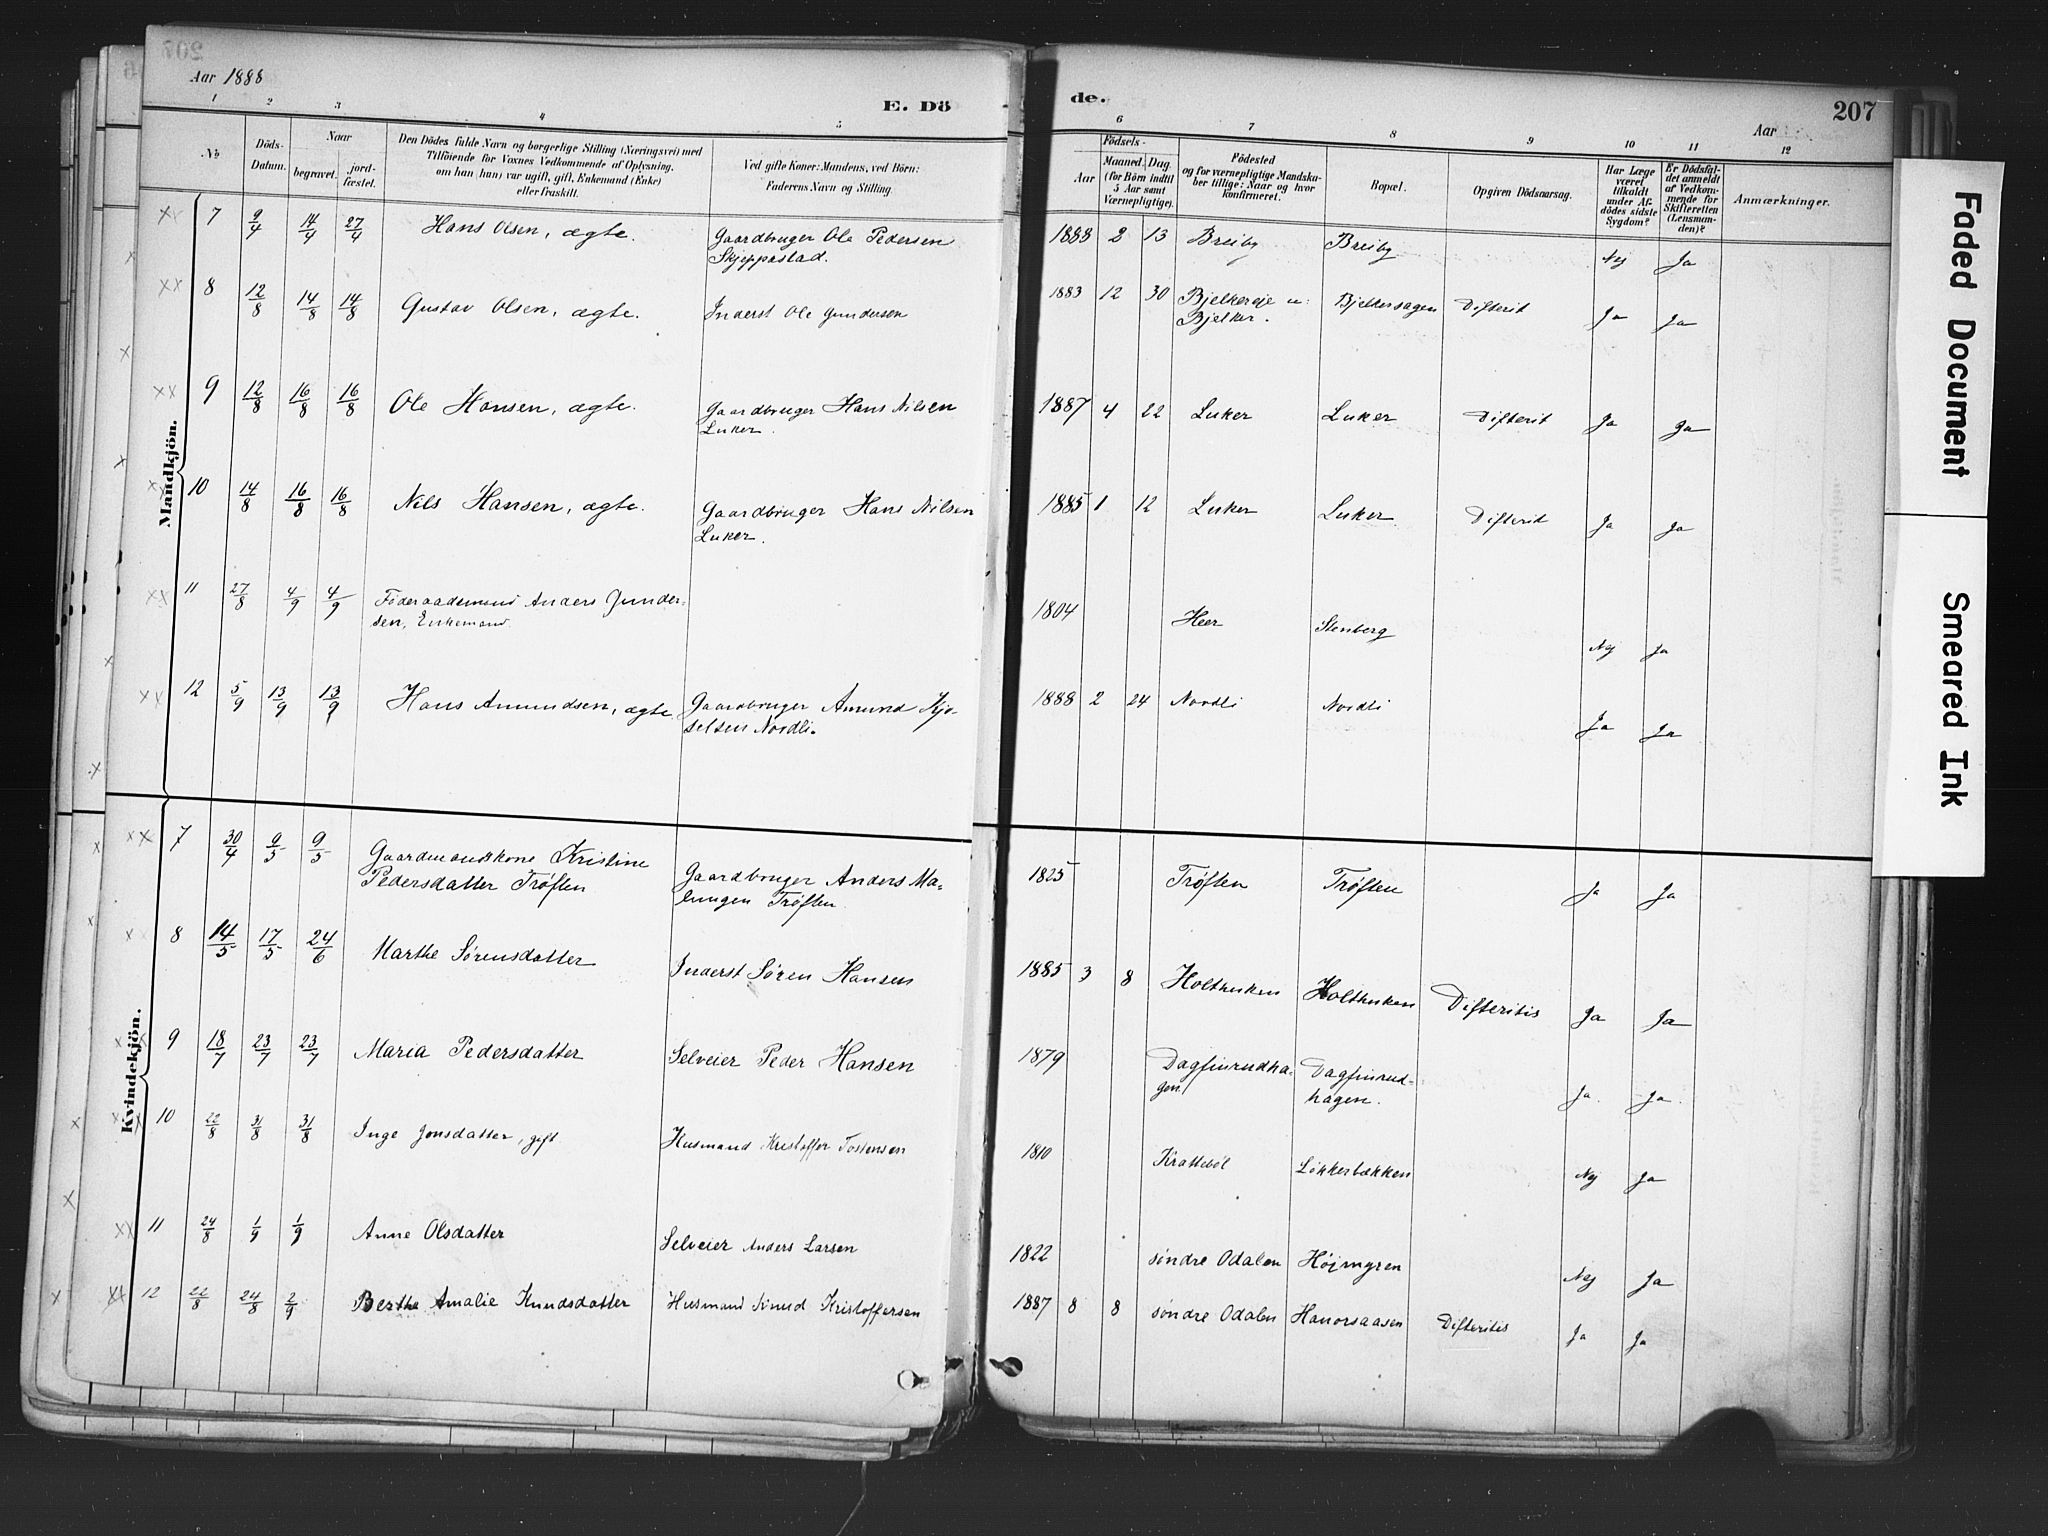 Aar 1888
E. Dö
de.
Aar
207
1 2 3 4 5 6 7 8 9 10 11 12
No
Döds-Datum.
Naar
begravet.
jord-fæstet.
Den Dödes fulde Navn og borgerlige Stilling (Næringsvei) med
Tilföiende for Voxnes Vedkommende af Oplysning,
om han (hun) var ugift, gift, Enkemand (Enke)
eller fraskilt.
Ved gifte Koner: Mandens, ved Börn:
Faderens Navn og Stilling.
Födsels-
Aar
Maaned. Dag.
(for Börn indtil
5 Aar samt
Værnepligtige).
Födested
og for værnepligtige Mandsku-
ber tillige: Naar og hvor
konfirmeret.
Bopæl.
Opgiven Dödsaarsag.
Har Læge
været
tilkaldt
under Af-
dödes sidste
Sygdom?
Er Dödsfal-
det anmeldt
af Vedkom-
mende for
Skifteretten
(Lensman-
den)?
Anmærkninger.
Mandkjön.
7 9/4 14/4 27/4 Hans Olsen, ægte. Gaardbruger Ole Pedersen 1888 2 13 Breiby Breiby Nej Ja
Skjeppastad.
8 12/8 14/8 14/8 Gustav Olsen, ægte. Inderst Ole Gundersen 1883 12 30 Bjelkereje u: Bjelkersagen Difterit Ja Ja
Bjelker.
9 12/8 16/8 16/8 Ole Hansen, ægte. Gaardbruger Hans Nilsen 1887 4 22 Luker Luker Difterit Ja Ja
Luker.
10 14/8 16/8 16/8 Nils Hansen, ægte. Gaardbruger Hans Nilsen 1885 1 12 Luker Luker Difterid Ja Ja
Luker.
11 27/8 4/9 4/9 Føderaadsmand Anders Gunder- 1804 Heer Stenberg Nej Ja
sen, Enkemand.
12 5/9 13/9 13/9 Hans Amundsen, ægte Gaardbruger Amund Kjo- 1888 2 24 Nordli Nordli Ja Ja
selsen Nordli.
Kvindekjön.
7 30/4 9/5 9/5 Gaardmandskone Kristine Gaardbruger Anders Ma- 1825 Trøften Trøften Ja Ja
Pedersdatter Trøften lungen Trøften
8 14/5 17/5 24/6 Marthe Sørensdatter Inderst Søren Hansen 1885 3 8 Holthusken Holthusken Difteritis Ja Ja
9 18/7 23/7 23/7 Maria Pedersdatter Selveier Peder Hansen 1879 Dagfinrudha- Dagfinrud- Ja. Ja.
gen hagen.
10 22/8 31/8 31/8 Inge Jonsdatter, gift Husmand Kristoffer Tostensen 1810 Krattebøl Løkkerbækken Nej Ja
11 24/8 1/9 1/9 Anne Olsdatter Selveier Anders Larsen 1822 søndre Odalen Højmyren Nej Ja
12 22/8 24/8 2/9 Berthe Amalie Knudsdatter Husmand Knud Kristoffersen 1887 8 8 søndre Odalen Hanorsaasen Difteritis Ja Ja
Faded Document
Smeared Ink